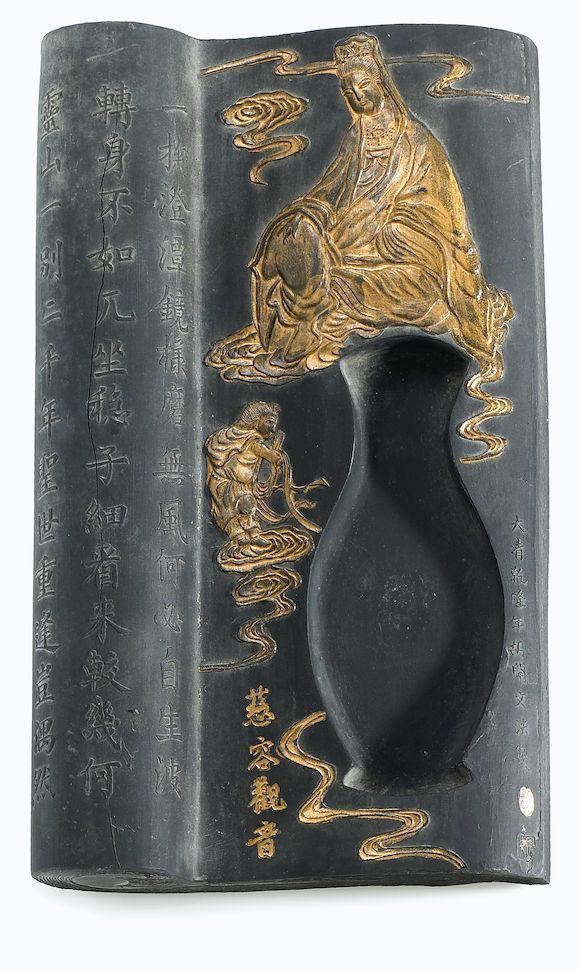 大清乾隆年胡開文法製
慈容觀音
一澄潭鏡樣磨無風何必自生波
轉身不如兀坐稳子細看来較幾何
靈山一別二千年聖世重逢豈偶然